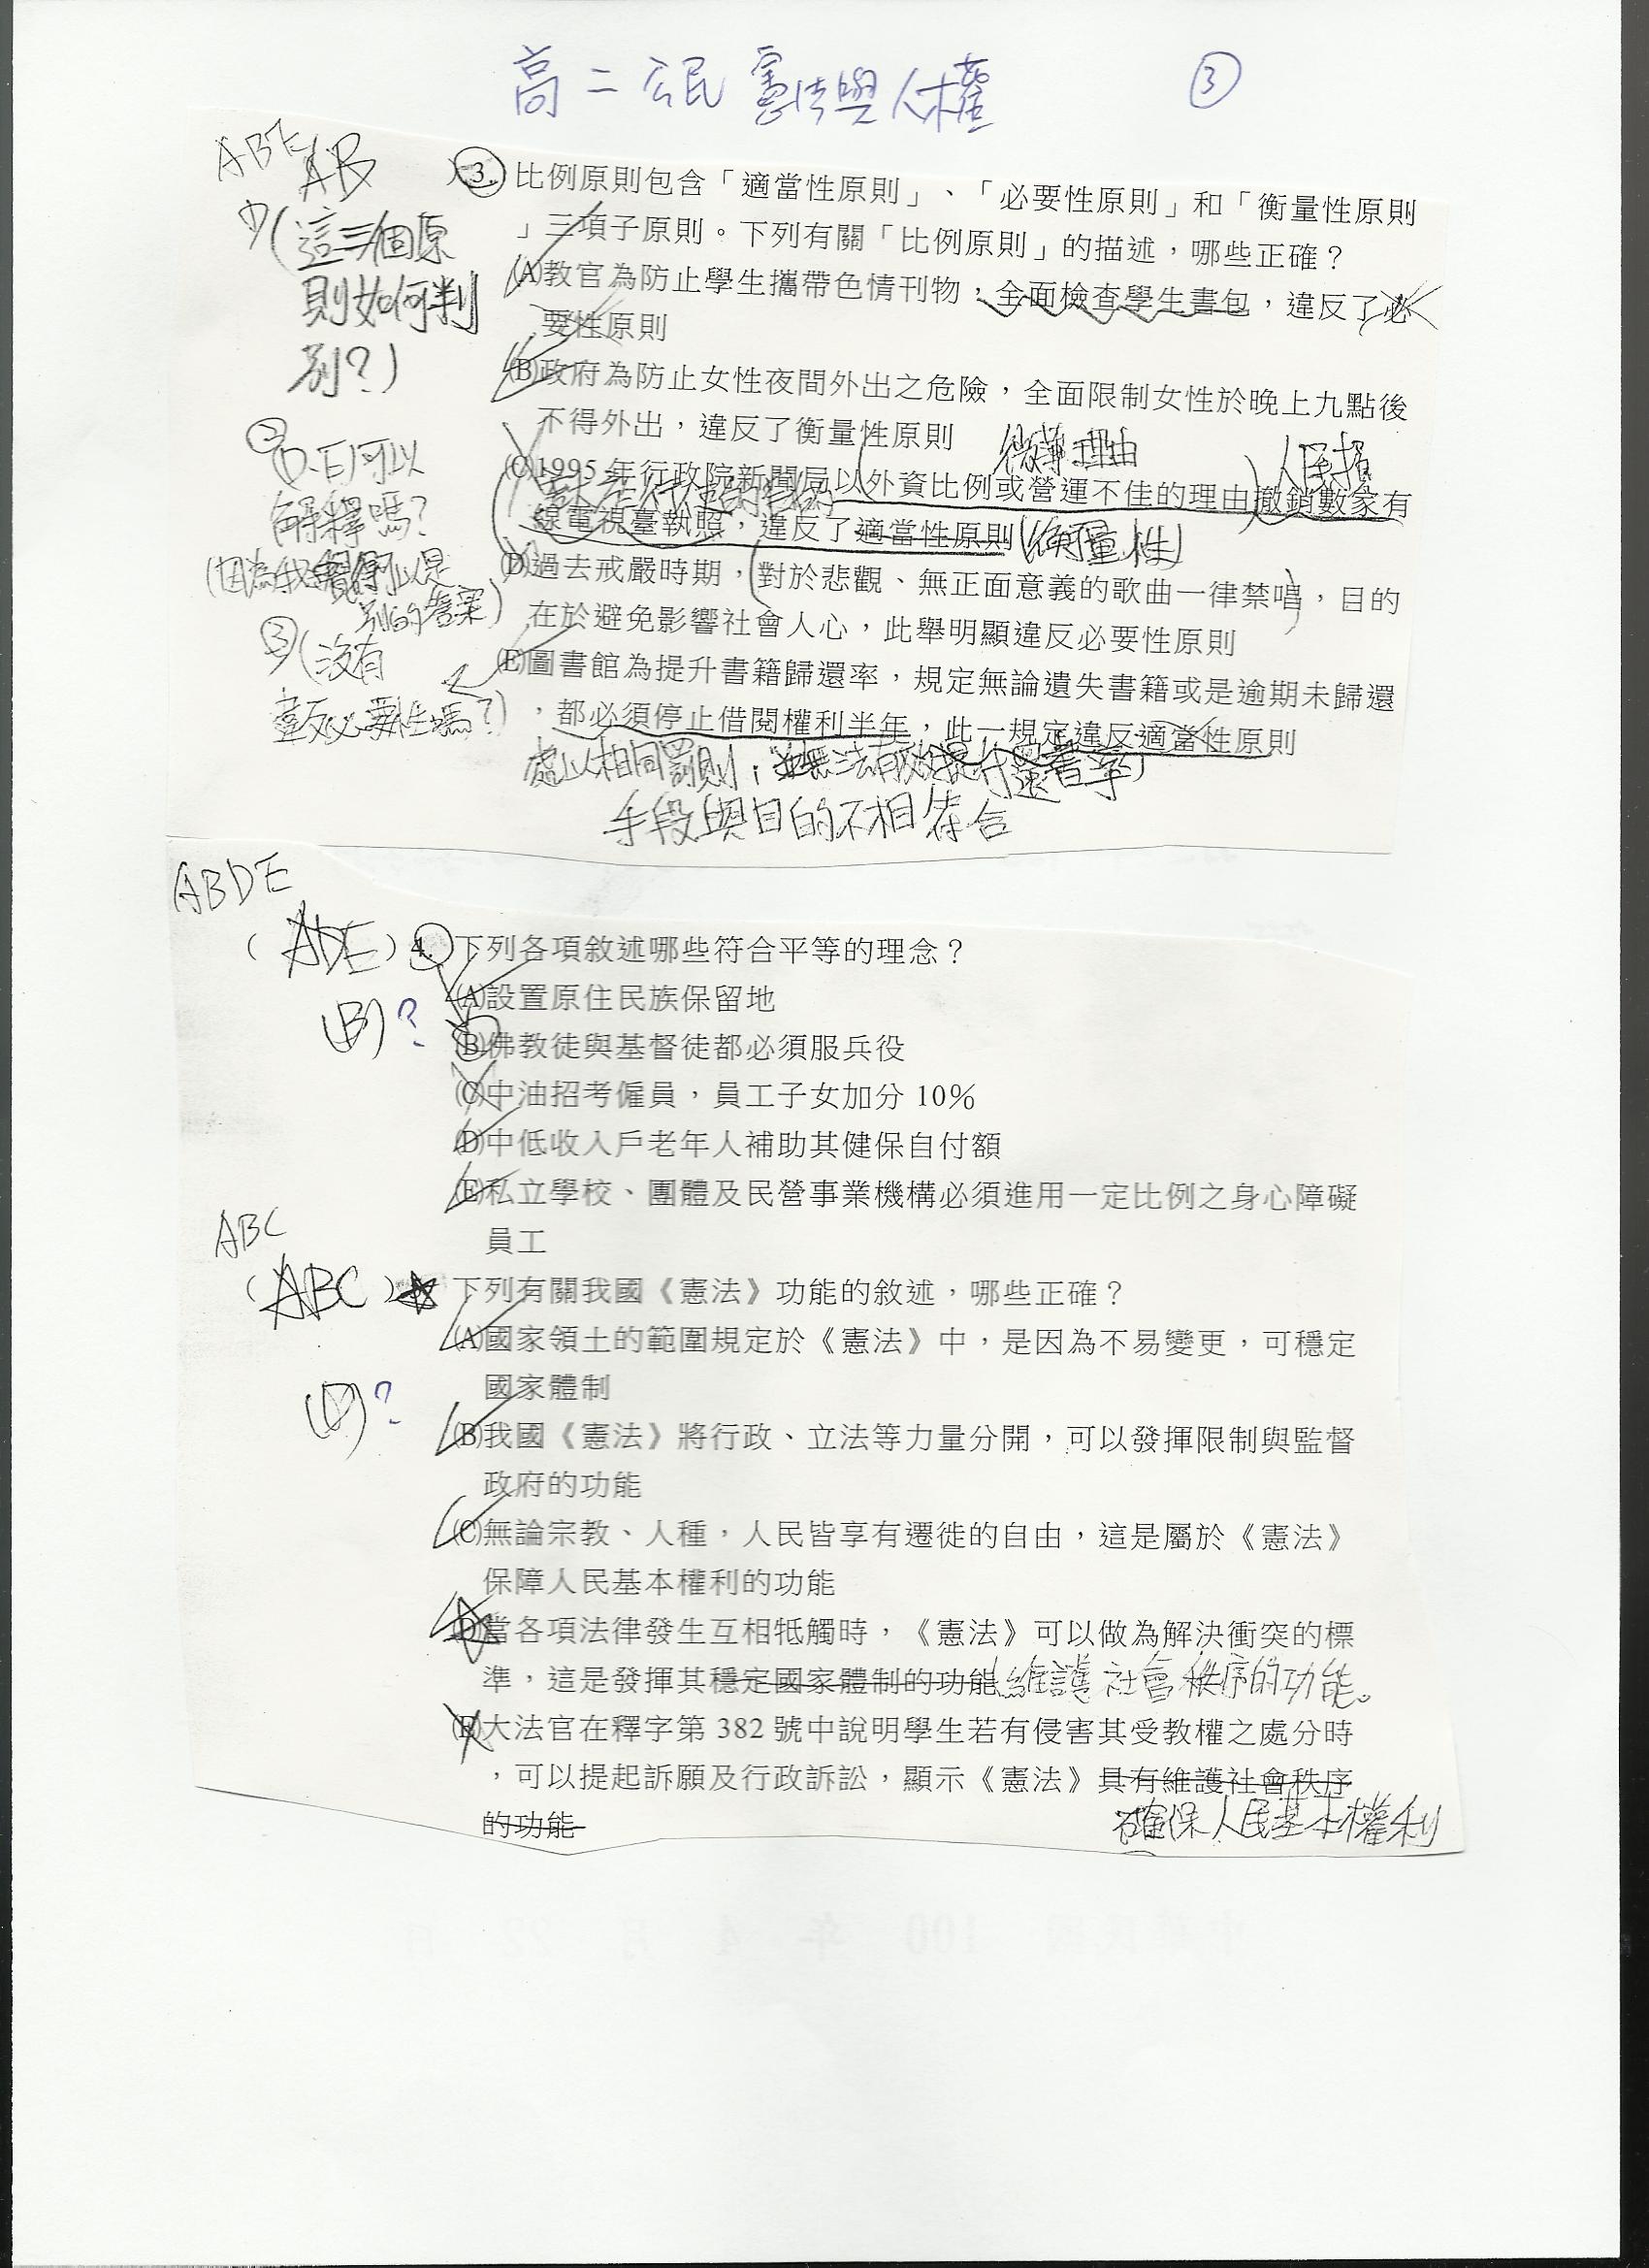 高二公民 憲法與人權 ③
ABE
AB
3. 比例原則包含「適當性原則」、「必要性原則」和「衡量性原則
」三項子原則。下列有關「比例原則」的描述，哪些正確？
(A)教官為防止學生攜帶色情刊物，全面檢查學生書包，違反了必
要性原則
(B)政府為防止女性夜間外出之危險，全面限制女性於晚上九點後
不得外出，違反了衡量性原則
微薄理由
人民損
(C)1995年行政院新聞局以外資比例或營運不佳的理由撤銷數家有
線電視臺執照，違反了適當性原則(衡量性)
(D)過去戒嚴時期，對於悲觀、無正面意義的歌曲一律禁唱，目的
在於避免影響社會人心，此舉明顯違反必要性原則
(E)圖書館為提升書籍歸還率，規定無論遺失書籍或是逾期未歸還
，都必須停止借閱權利半年，此一規定違反適當性原則
處以相同罰則；並無法有效提升還書率)
手段與目的不相符合
1(這三個原
則如何判
別？)
②
D、E可以
解釋嗎？
(因為我覺得可以是
別的答案)
③(沒有
違反必要性嗎？)
ABDE
(ADE) 4. 下列各項敘述哪些符合平等的理念？
(B)？
(A)設置原住民族保留地
(B)佛教徒與基督徒都必須服兵役
(C)中油招考僱員，員工子女加分 10％
(D)中低收入戶老年人補助其健保自付額
(E)私立學校、團體及民營事業機構必須進用一定比例之身心障礙
員工
ABC
(ABC) 下列有關我國《憲法》功能的敘述，哪些正確？
(D)？
(A)國家領土的範圍規定於《憲法》中，是因為不易變更，可穩定
國家體制
(B)我國《憲法》將行政、立法等力量分開，可以發揮限制與監督
政府的功能
(C)無論宗教、人種，人民皆享有遷徙的自由，這是屬於《憲法》
保障人民基本權利的功能
(D)當各項法律發生互相牴觸時，《憲法》可以做為解決衝突的標
準，這是發揮其穩定國家體制的功能(維護社會秩序的功能。
(E)大法官在釋字第 382 號中說明學生若有侵害其受教權之處分時
，可以提起訴願及行政訴訟，顯示《憲法》具有維護社會秩序
的功能
確保人民基本權利
中華民國 100 年 4 月 22 日